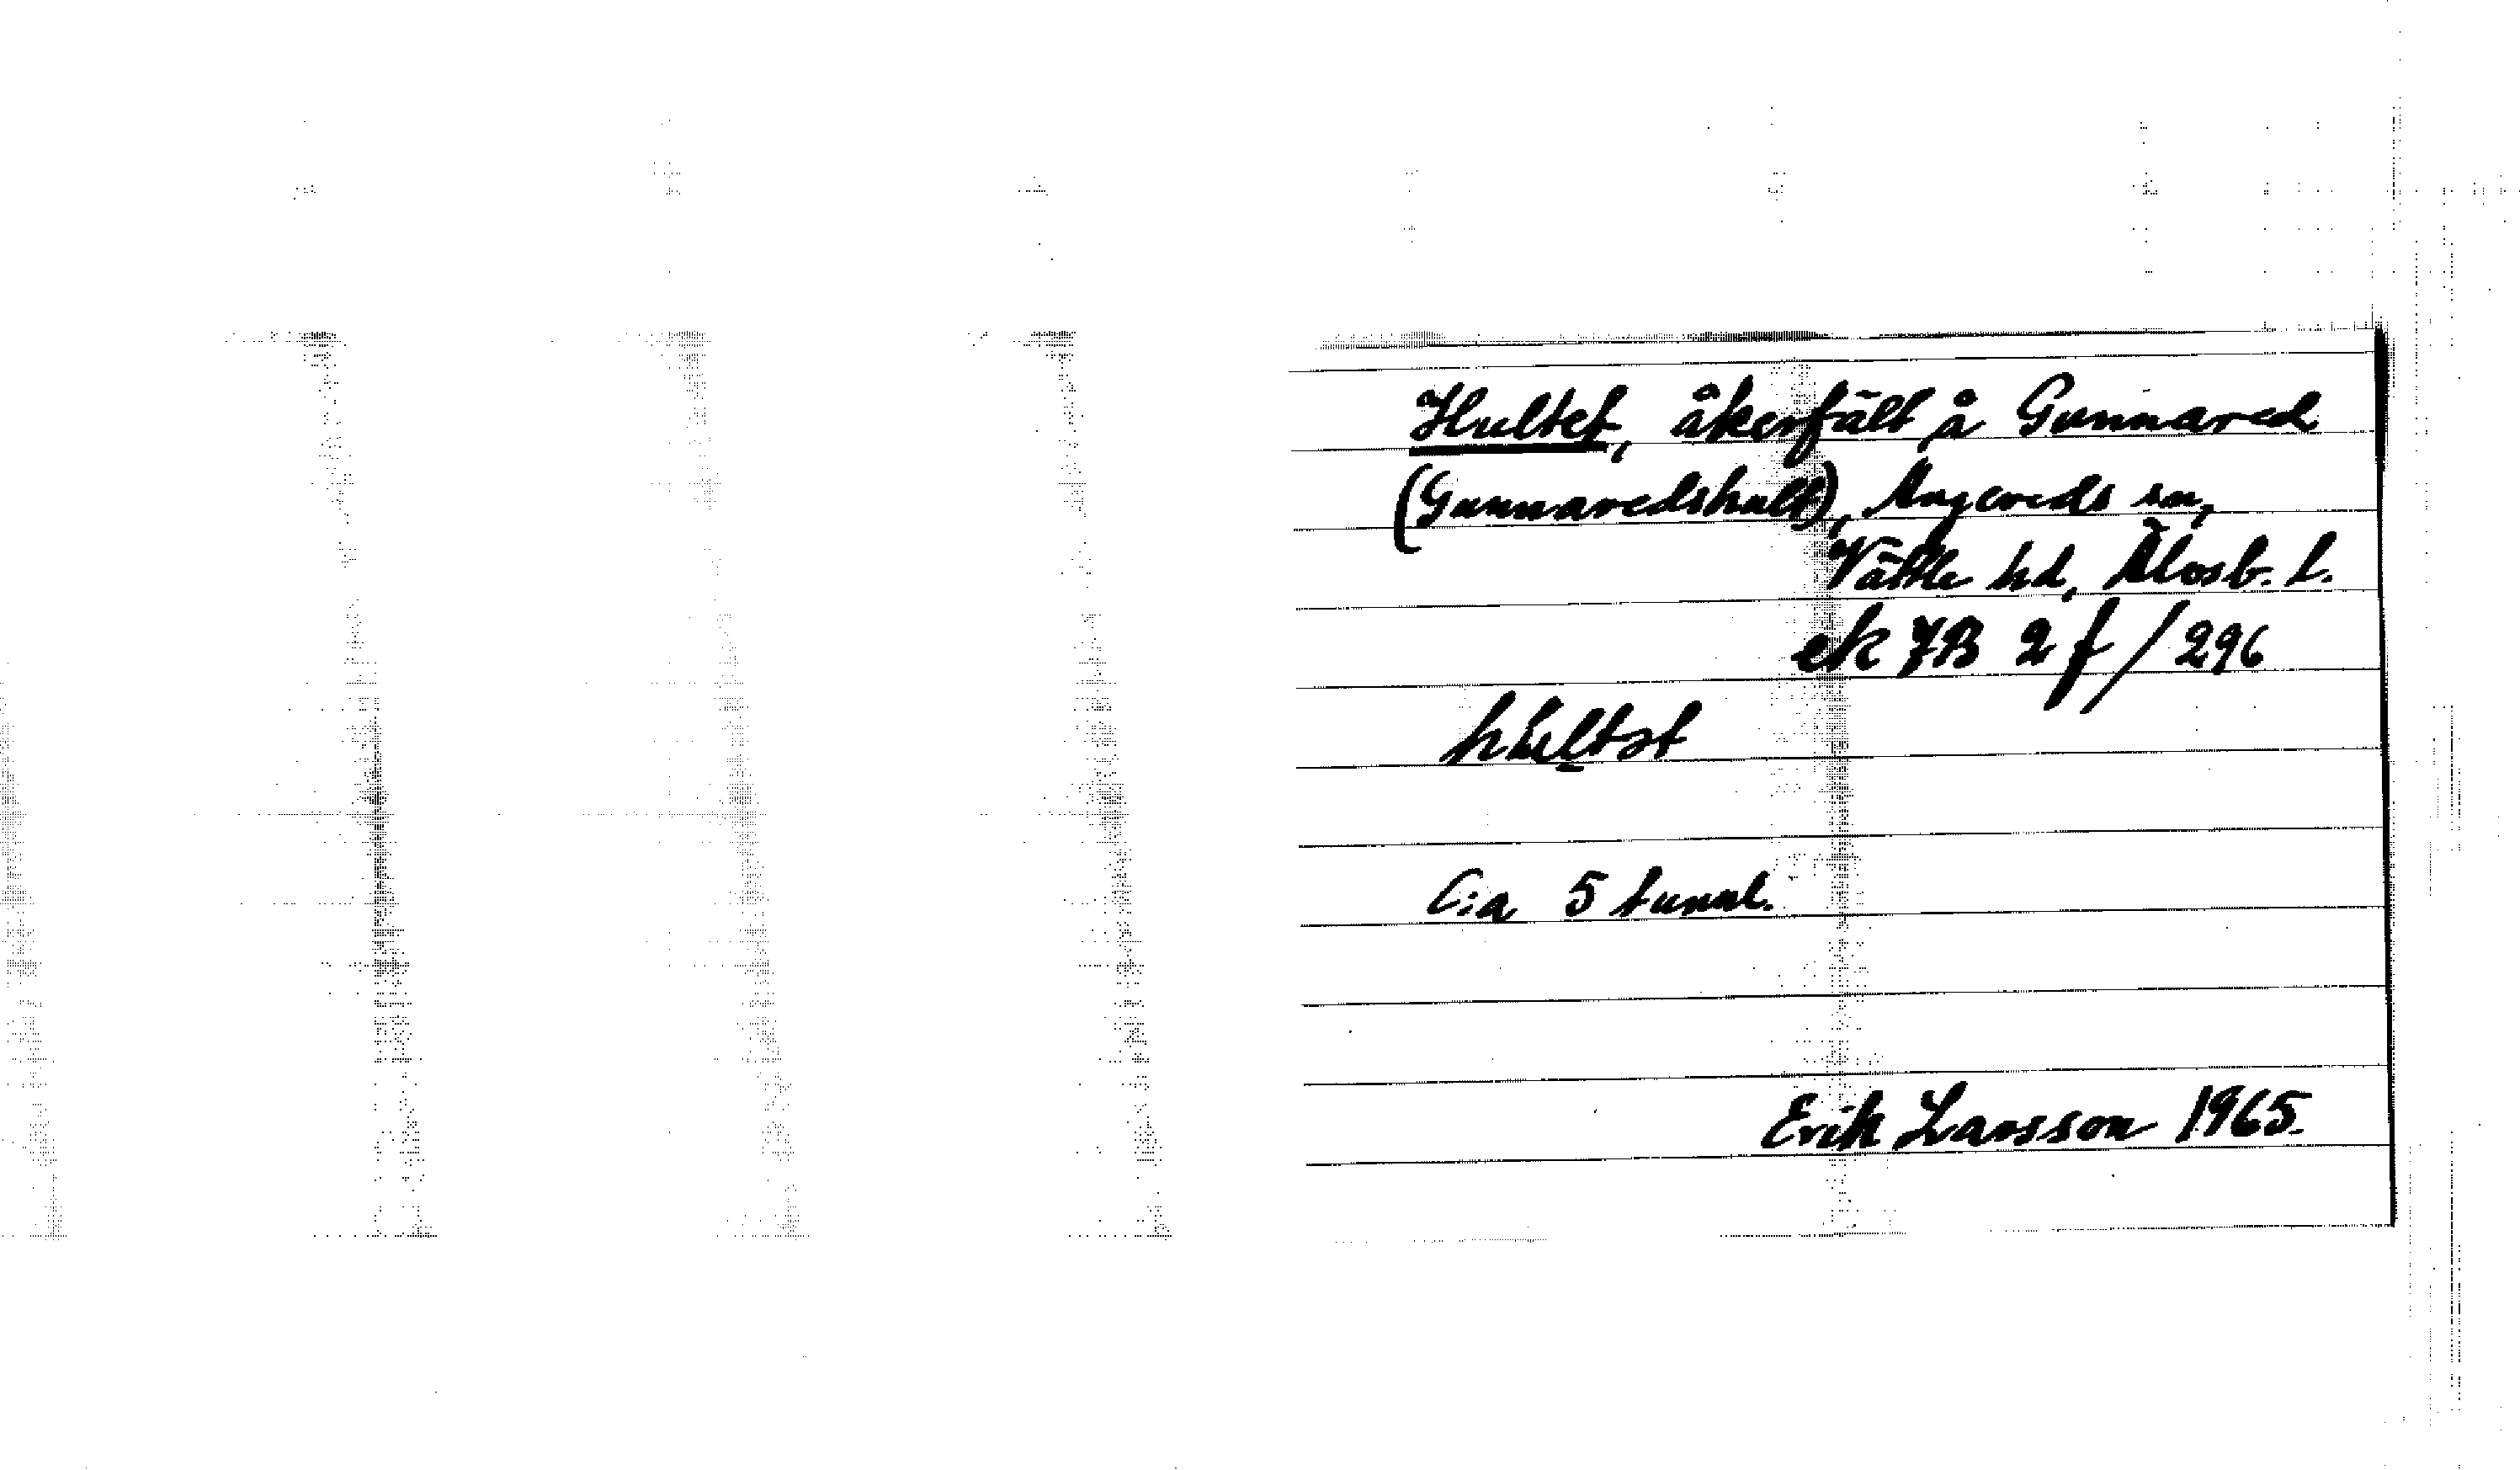 Hultet, åkerfält å Gunnared
(Gunnaredshult), Angereds sn,
Vättle hd, Älvsb. l.
ek 7B 2 f / 296
Ca 5 tunnl.
Erik Larsson 1965.